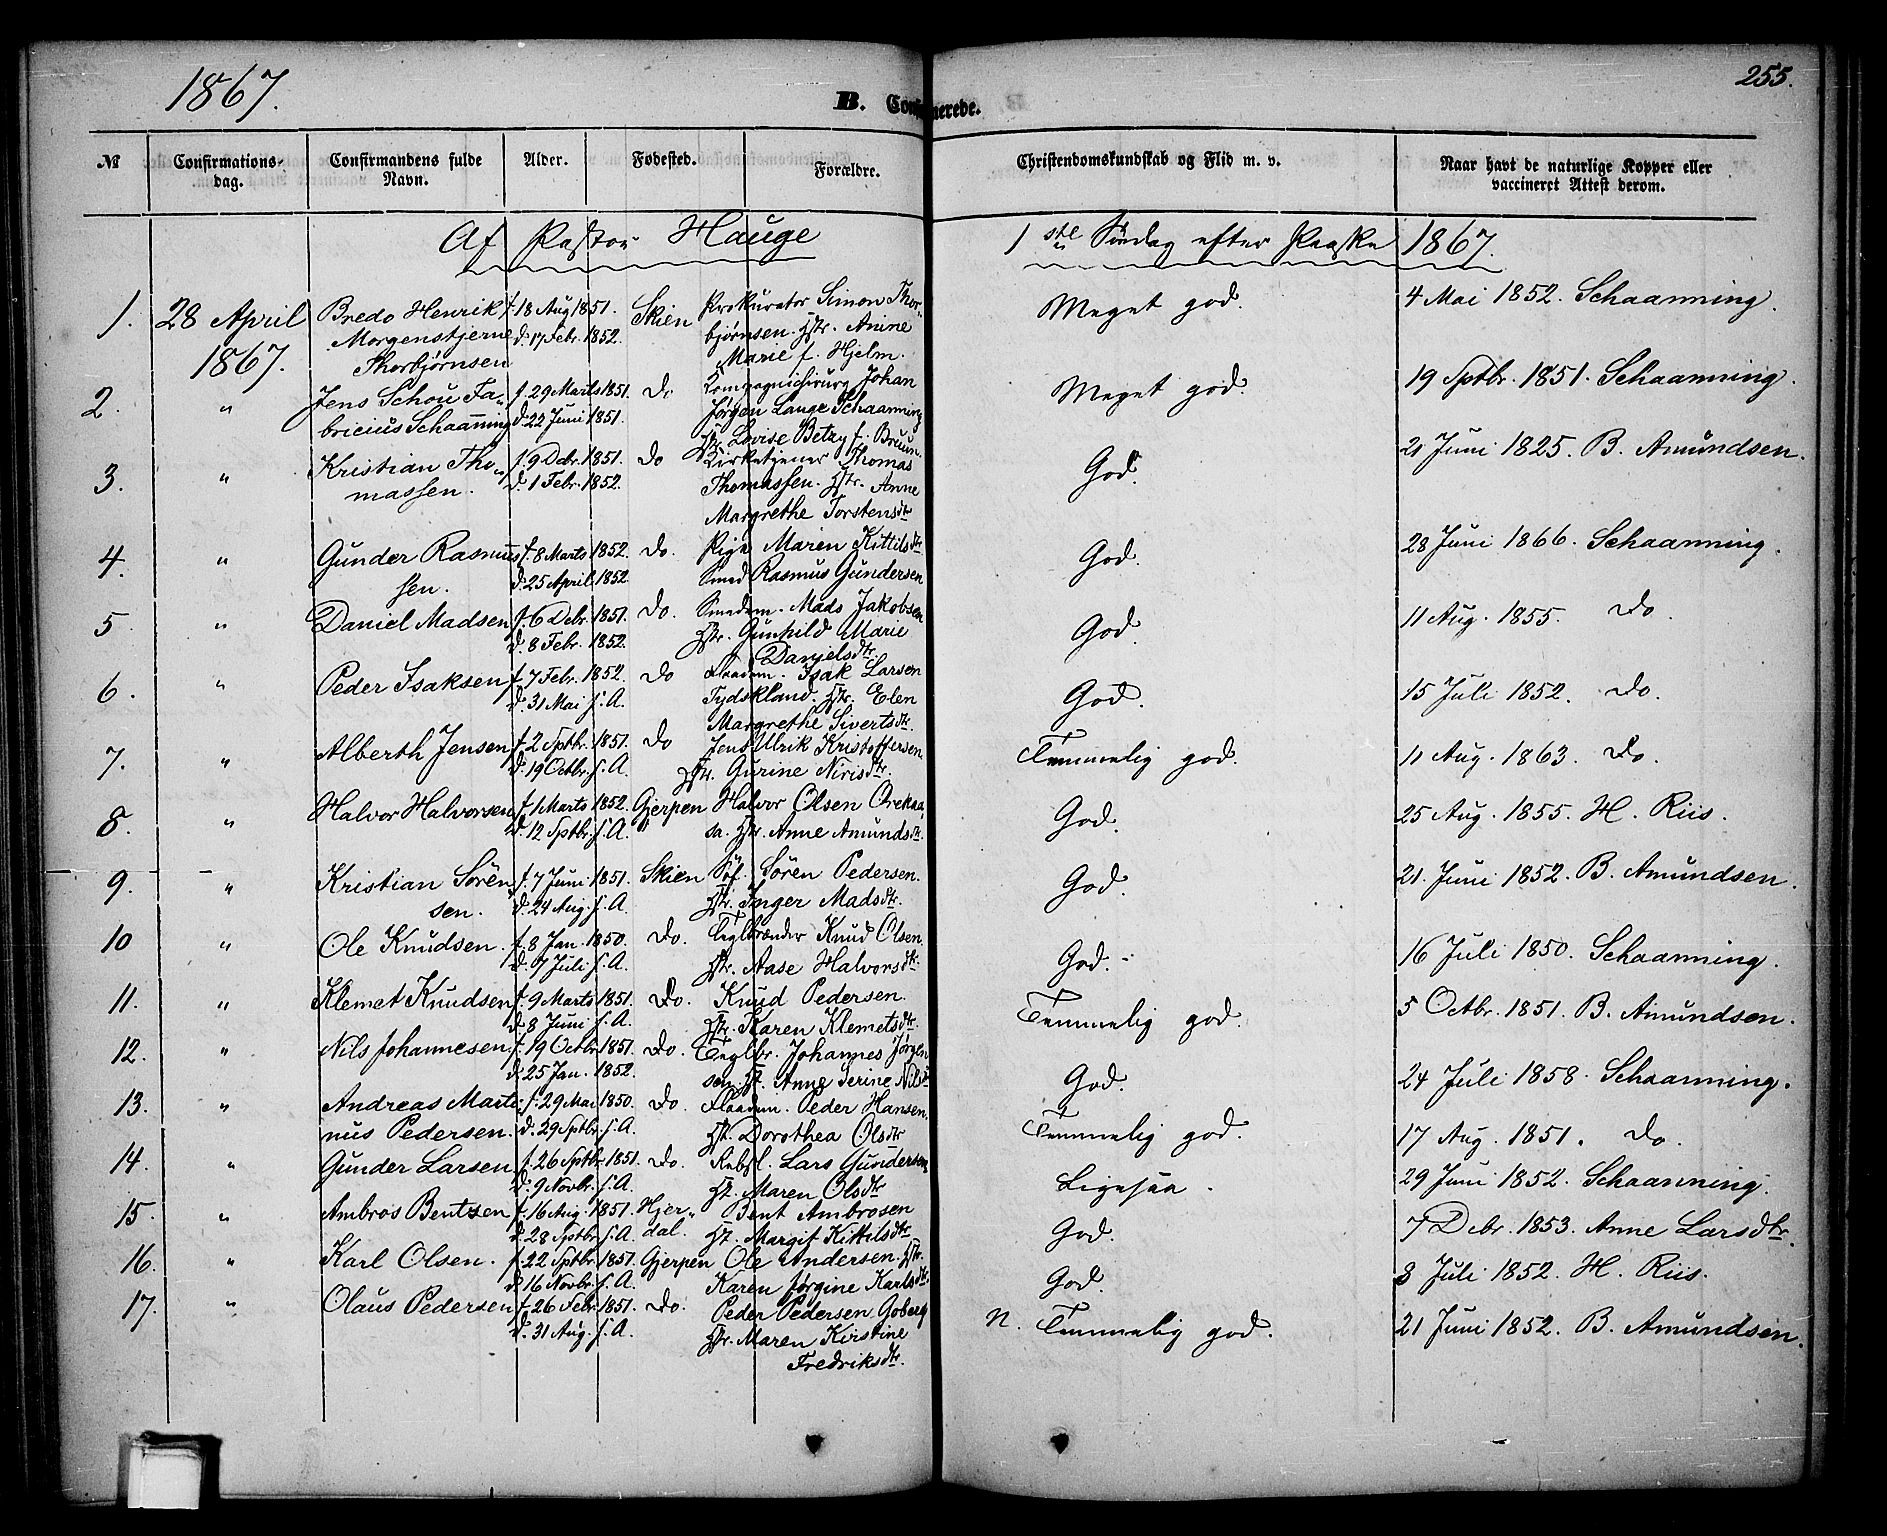 1867.
255.
B. Confirmerede.
№ Confirmations- dag. Confirmandens fulde Navn. Alder. Fødested. Forældre. Christendomskundskab og Flid m. v. Naar havt de naturlige Kopper eller vaccineret Attest derom.
Af Pastor Hauge 1ste Søndag efter Paaske 1867.
1. 28 April Bredo Henrik f. 18 Aug 1851. Skien Prokurator Simon Thor- Meget god. 4 Mai 1852. Schaanning.
1867. Morgenstjerne d. 17 Febr. 1852. bjørnsen. Hstr. Anine
Thorbjørnsen Marie f. Hjelm.
2. " Jens Schou Fa- f. 29 Marts 1851. Do Kompagnichirurg Johan Meget god. 19 Sptbr. 1851. Schaanning.
bricius Schaanning d. 22 Juni 1851. Jørgen Lange Schaanning
Hstr. Lovise Betzy f. Bruun.
3. " Kristian Tho- f. 9 Debr. 1851. Do Kirketjener Thomas God. 21 Juni 1825. B. Amundsen.
massen. d. 1 Febr. 1852. Thomassen. Hstr. Anne
Margrethe Torstensdtr
4. " Gunder Rasmus- f. 8 Marts 1852. Do. Pige Maren Kittilsdtr God. 28 Juni 1866. Schaanning.
sen. d. 25 April 1852. Smed Rasmus Gundersen
5 " Daniel Madsen f. 6 Debr. 1851. Do. Smedem. Mads Jakobsen God. 11 Aug. 1855. Do.
d. 8 Febr. 1852. Hstr. Gunhild Marie
Danjelsdtr.
6. " Peder Isaksen f. 7 Febr. 1852. Do Flaadm. Isak Larsen God. 15 Juli 1852. Do.
d. 31 Mai s. A. Tydskland. Hstr. Elen
Margrethe Sivertsdtr.
7. " Alberth Jensen f. 2 Sptbr. 1851. Do Jens Ulrik Kristoffersen Temmelig god. 11 Aug. 1863. Do.
d. 19 Octbr. s. A. Hstr. Gurine Nirisdtr.
8. " Halvor Halvorsen f. 1 Marts 1852. Gjerpen Halvor Olsen Orekaa- God. 25 Aug. 1855. H. Riis.
d. 12 Sptbr. s. A. " sa. Hstr. Anne Amundsdtr.
9. " Kristian Sören- f. 7 Juni 1851. Skien Søf. Sören Pedersen. God. 21. Juni 1852. B. Amundsen.
sen. d. 24 Aug. s. A. Hstr. Inger Madsdtr.
10 " Ole Knudsen. f. 8 Jan. 1850. Do. Teglbrænder Knud Olsen. God. 16 Juli 1850. Schaanning.
d. 7 Juli s. A. Hstr. Aase Halvorsdtr.
11. " Klemet Knudsen f. 9 Marts 1851. Do. Knud Pedersen. Temmelig god. 5 Octbr. 1851. B. Amundsen.
d. 8 Juni s. A. Hstr. Karen Klemetsdtr.
12. " Nils Johannesen f. 19 Octbr. 1851. Do. Teglbr. Johannes Jørgen God. 24 Juli 1858. Schaanning.
d. 25 Jan. 1852. sen. Hst. Anne Serine Nilsd
13. " Andreas Marti- f. 29 Mai 1850. Do. Flaadm. Peder Hansen. Temmelig god. 17 Aug. 1851. Do.
nus Pedersen. d. 29 Sptbr. s. A. Hst. Dorothea Olsdtr
14. " Gunder Larsen f. 26 Sptbr. 1851. Do. Rebsl. Lars Gundersen Ligesaa. 29 Juni 1852. Schaanning.
d. 9 Novbr. s. A. Hst. Maren Olsdtr
15. " Ambros Bentsen f. 16 Aug. 1851. Hjer- Bent Ambrosen God. 7 Debr. 1853. Anne Larsdtr.
d. 28 Sptbr. s. A. dal. Hst. Margit Kittilsdtr
16. " Karl Olsen. f. 22 Sptbr. 1851. Gjerpen Ole Andersen. Hstr. God. 8 Juli 1852. H. Riis.
d. 16 Novbr. s. A. Karen Jørgine Karlsdtr.
17. " Olaus Pedersen f. 26 Febr. 1851. Do. Peder Pedersen Goberg N. Temmelig god. 21 Juni 1852. B. Amundsen.
d. 31 Aug. s. A. Hstr. Maren Kirstine
Fredriksdtr.